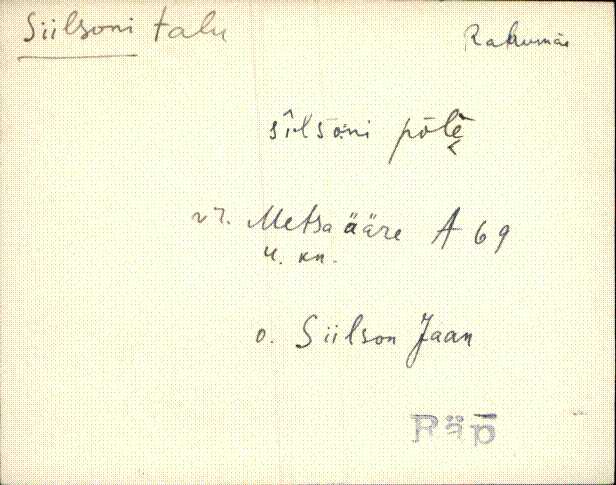 Siilsoni talu
Rahumäe
sîlsoni põlɛ̀
vt. Metsaääre A 69
u. kn.
o. Siilson Jaan
Räp